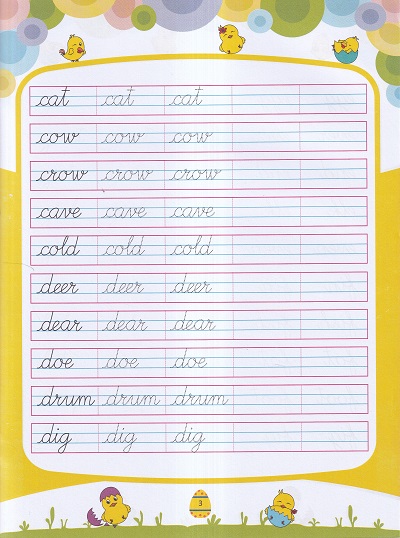 cat cat cat
cow cow cow
crow crow crow
cave cave cave
cold cold cold
deer deer deer
dear dear dear
doe doe doe
drum drum drum
dig dig dig
3